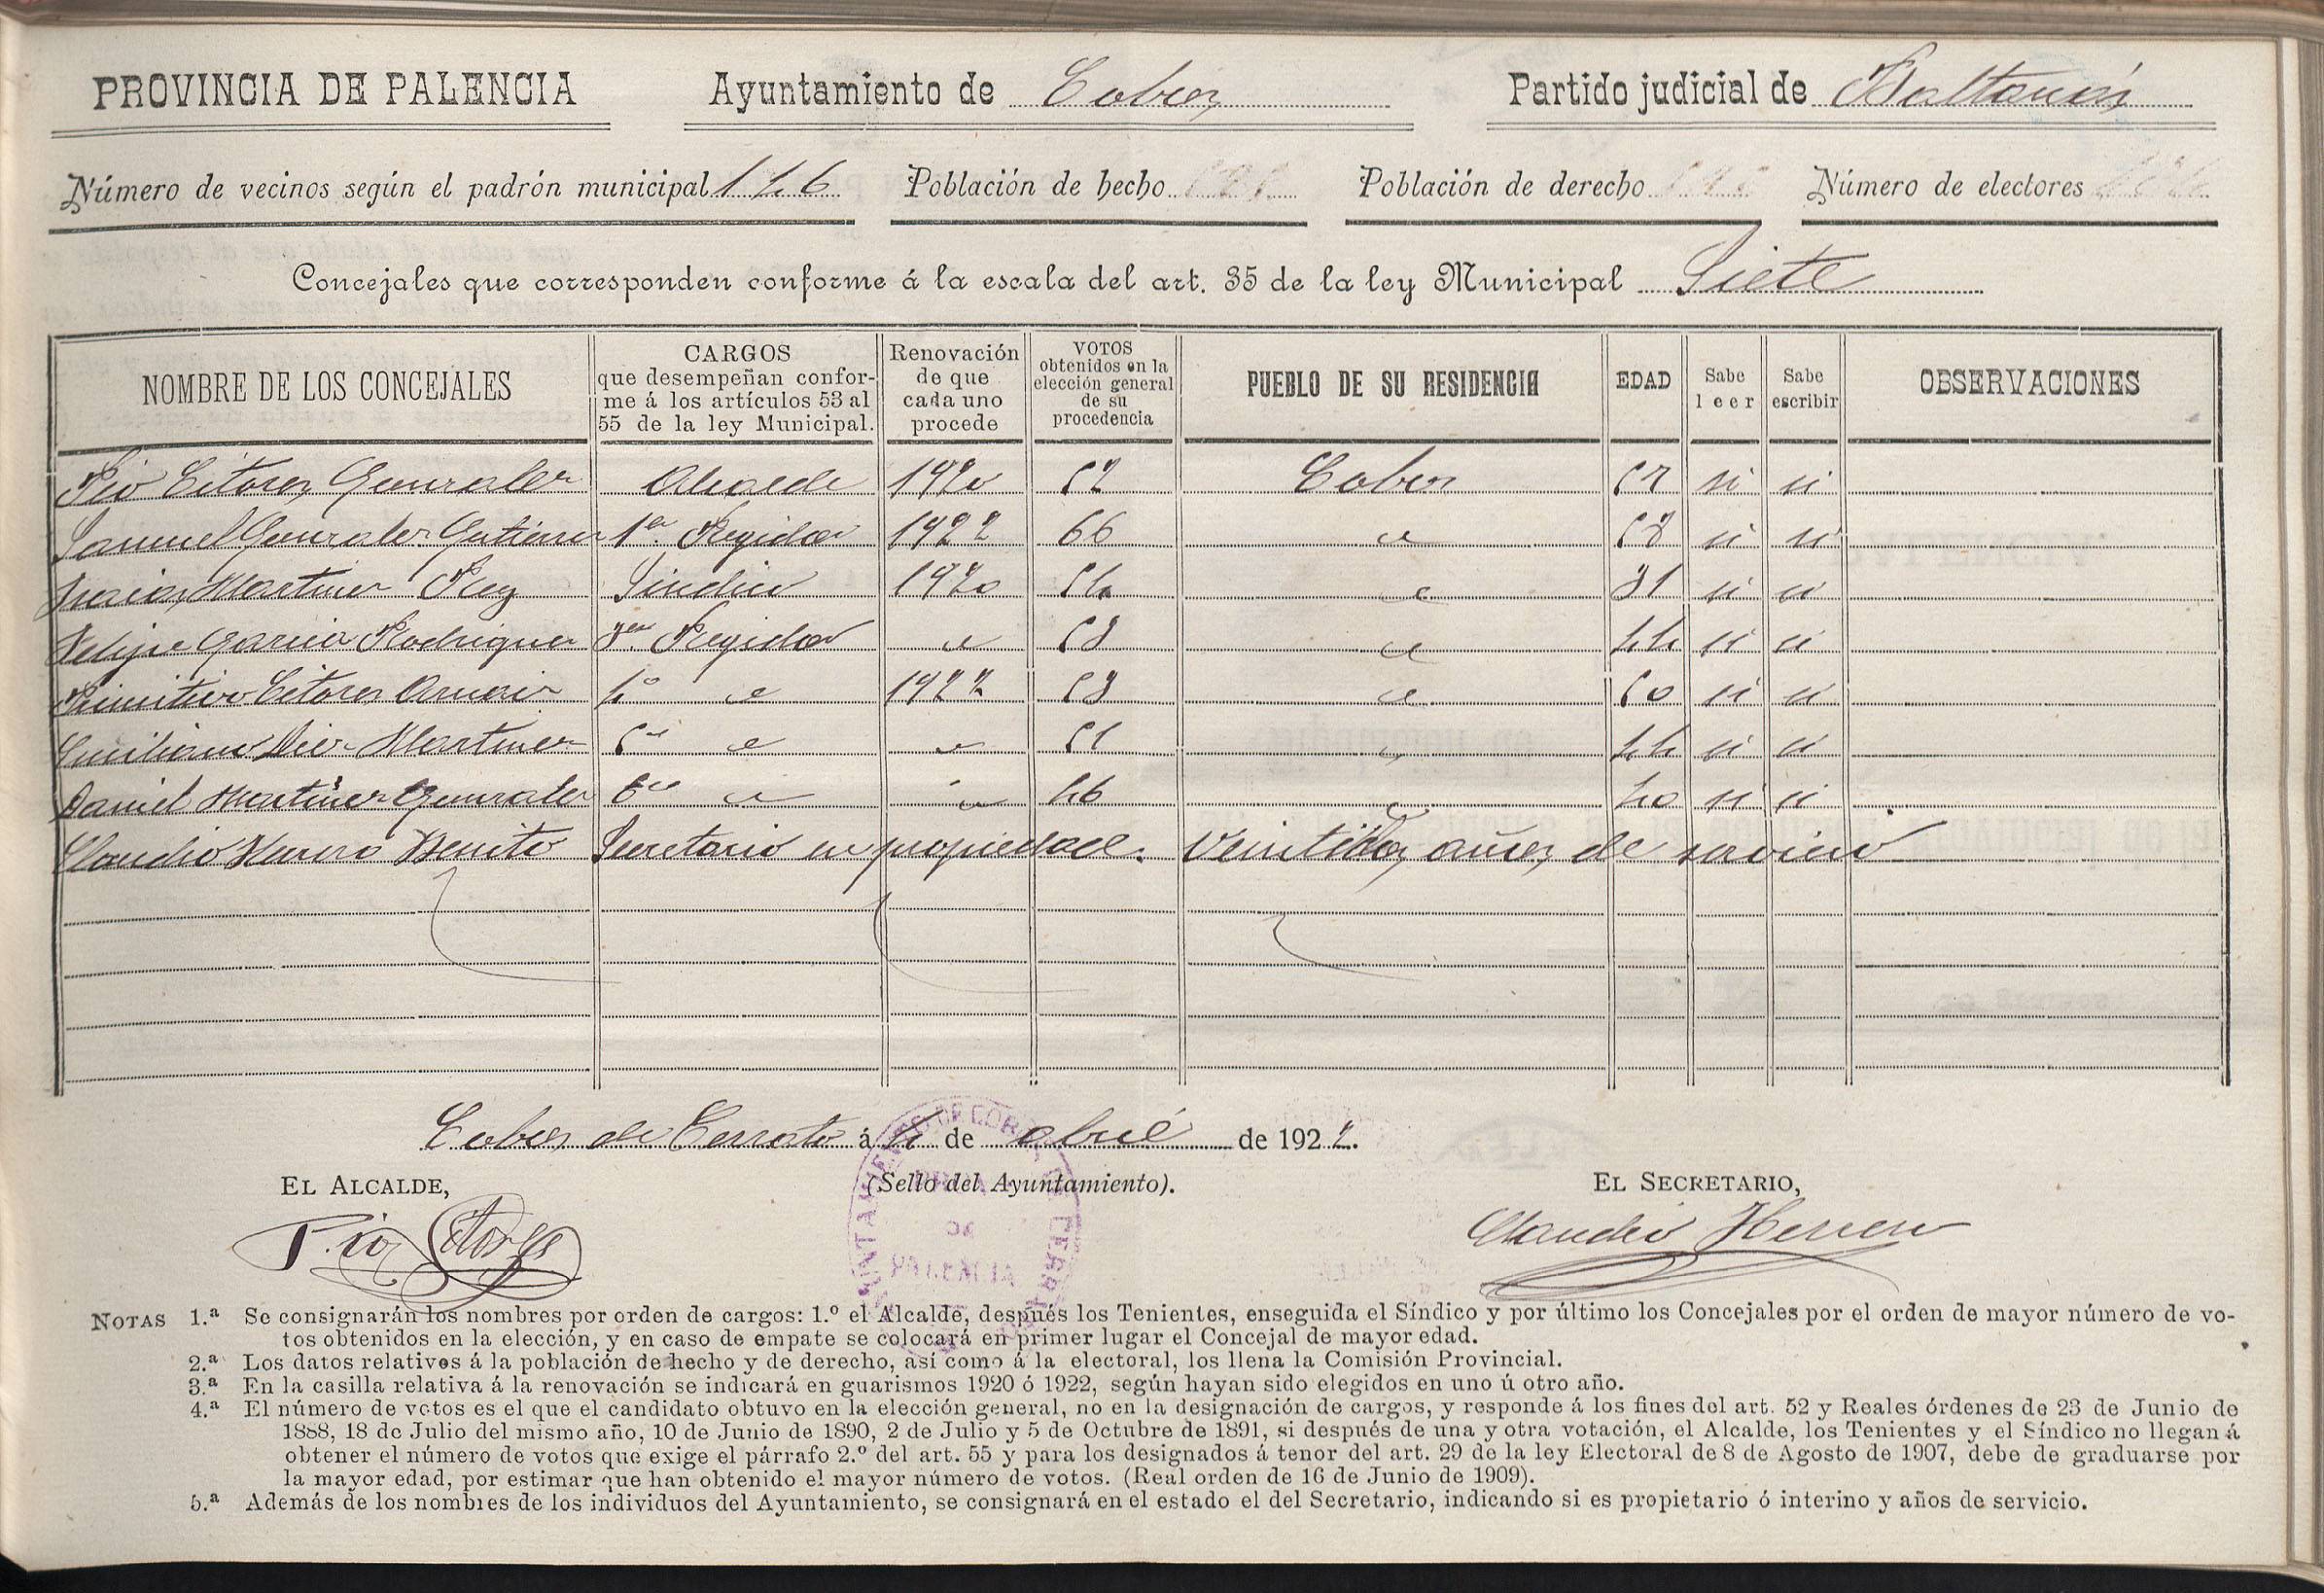 PROVINCIA DE PALENCIA Ayuntamiento de Cobos Partido judicial de Baltanás
Número de vecinos según el padrón municipal 146 Población de hecho Población de derecho Número de electores
Concejales que corresponden conforme á la escala del art. 35 de la ley Municipal Siete
NOMBRE DE LOS CONCEJALES CARGOS que desempeñan conforme á los artículos 53 al 55 de la ley Municipal. Renovación de que cada uno procede VOTOS obtenidos en la elección general de su procedencia PUEBLO DE SU RESIDENCIA EDAD Sabe leer Sabe escribir OBSERVACIONES
Pio Citores Gonzalez Alcalde 1920 52 Cobos si si
Samuel Gonzalez Gutierrez 1er Regidor 1922 66 " 52 si si
Isaias Martinez Rey Sindico 1920 54 " 31 si si
Felipe Garcia Rodriguez 3er Regidor " 53 " 44 si si
Primitivo Citores Arnaiz 4º " 1922 53 " 50 si si
Emiliano Diez Martinez 5º " " 51 " 44 si si
Daniel Martinez Gonzalez 6º " " 46 " 40 si si
Claudio Herrero Benito Secretario en propiedad. Veintidos años de servicio
Cobos de Cerrato á 4 de abril de 1922.
EL ALCALDE, (Sello del Ayuntamiento). EL SECRETARIO,
Pio Citores Claudio Herrero
AYUNTAMIENTO DE COBOS DE CERRATO
PALENCIA
NOTAS 1.ª Se consignarán los nombres por orden de cargos: 1.º el Alcalde, después los Tenientes, enseguida el Síndico y por último los Concejales por el orden de mayor número de vo-
tos obtenidos en la elección, y en caso de empate se colocará en primer lugar el Concejal de mayor edad.
2.ª Los datos relativos á la población de hecho y de derecho, así como á la electoral, los llena la Comisión Provincial.
3.ª En la casilla relativa á la renovación se indicará en guarismos 1920 ó 1922, según hayan sido elegidos en uno ú otro año.
4.ª El número de votos es el que el candidato obtuvo en la elección general, no en la designación de cargos, y responde á los fines del art. 52 y Reales órdenes de 23 de Junio de
1888, 18 de Julio del mismo año, 10 de Junio de 1890, 2 de Julio y 5 de Octubre de 1891, si después de una y otra votación, el Alcalde, los Tenientes y el Síndico no llegan á
obtener el número de votos que exige el párrafo 2.º del art. 55 y para los designados á tenor del art. 29 de la ley Electoral de 8 de Agosto de 1907, debe de graduarse por
la mayor edad, por estimar que han obtenido el mayor número de votos. (Real orden de 16 de Junio de 1909).
5.ª Además de los nombres de los individuos del Ayuntamiento, se consignará en el estado el del Secretario, indicando si es propietario ó interino y años de servicio.